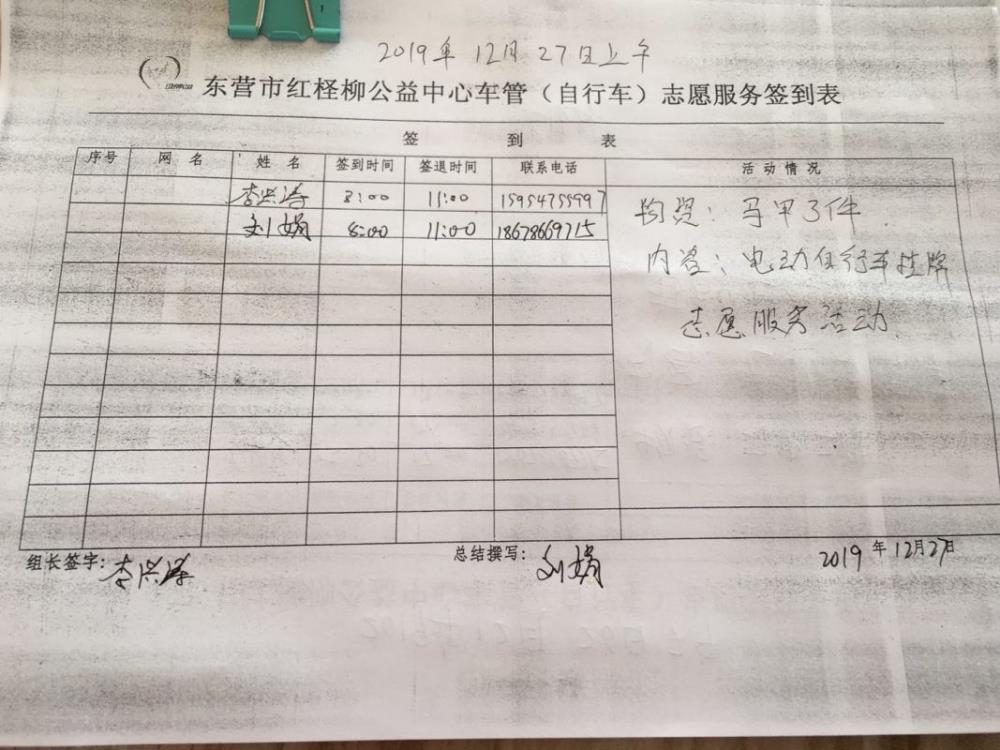 2019年12月27日上午
东营市红柽柳公益中心车管（自行车）志愿服务签到表
签 到 表
序号 网 名 姓 名 签到时间 签退时间 联系电话 活动情况
李洪涛 8:00 11:00 15954755997
刘娟 8:00 11:00 18678669715
物资：马甲3件
内容：电动自行车挂牌
志愿服务活动
组长签字：李洪涛 总结撰写：刘娟 2019年12月27日